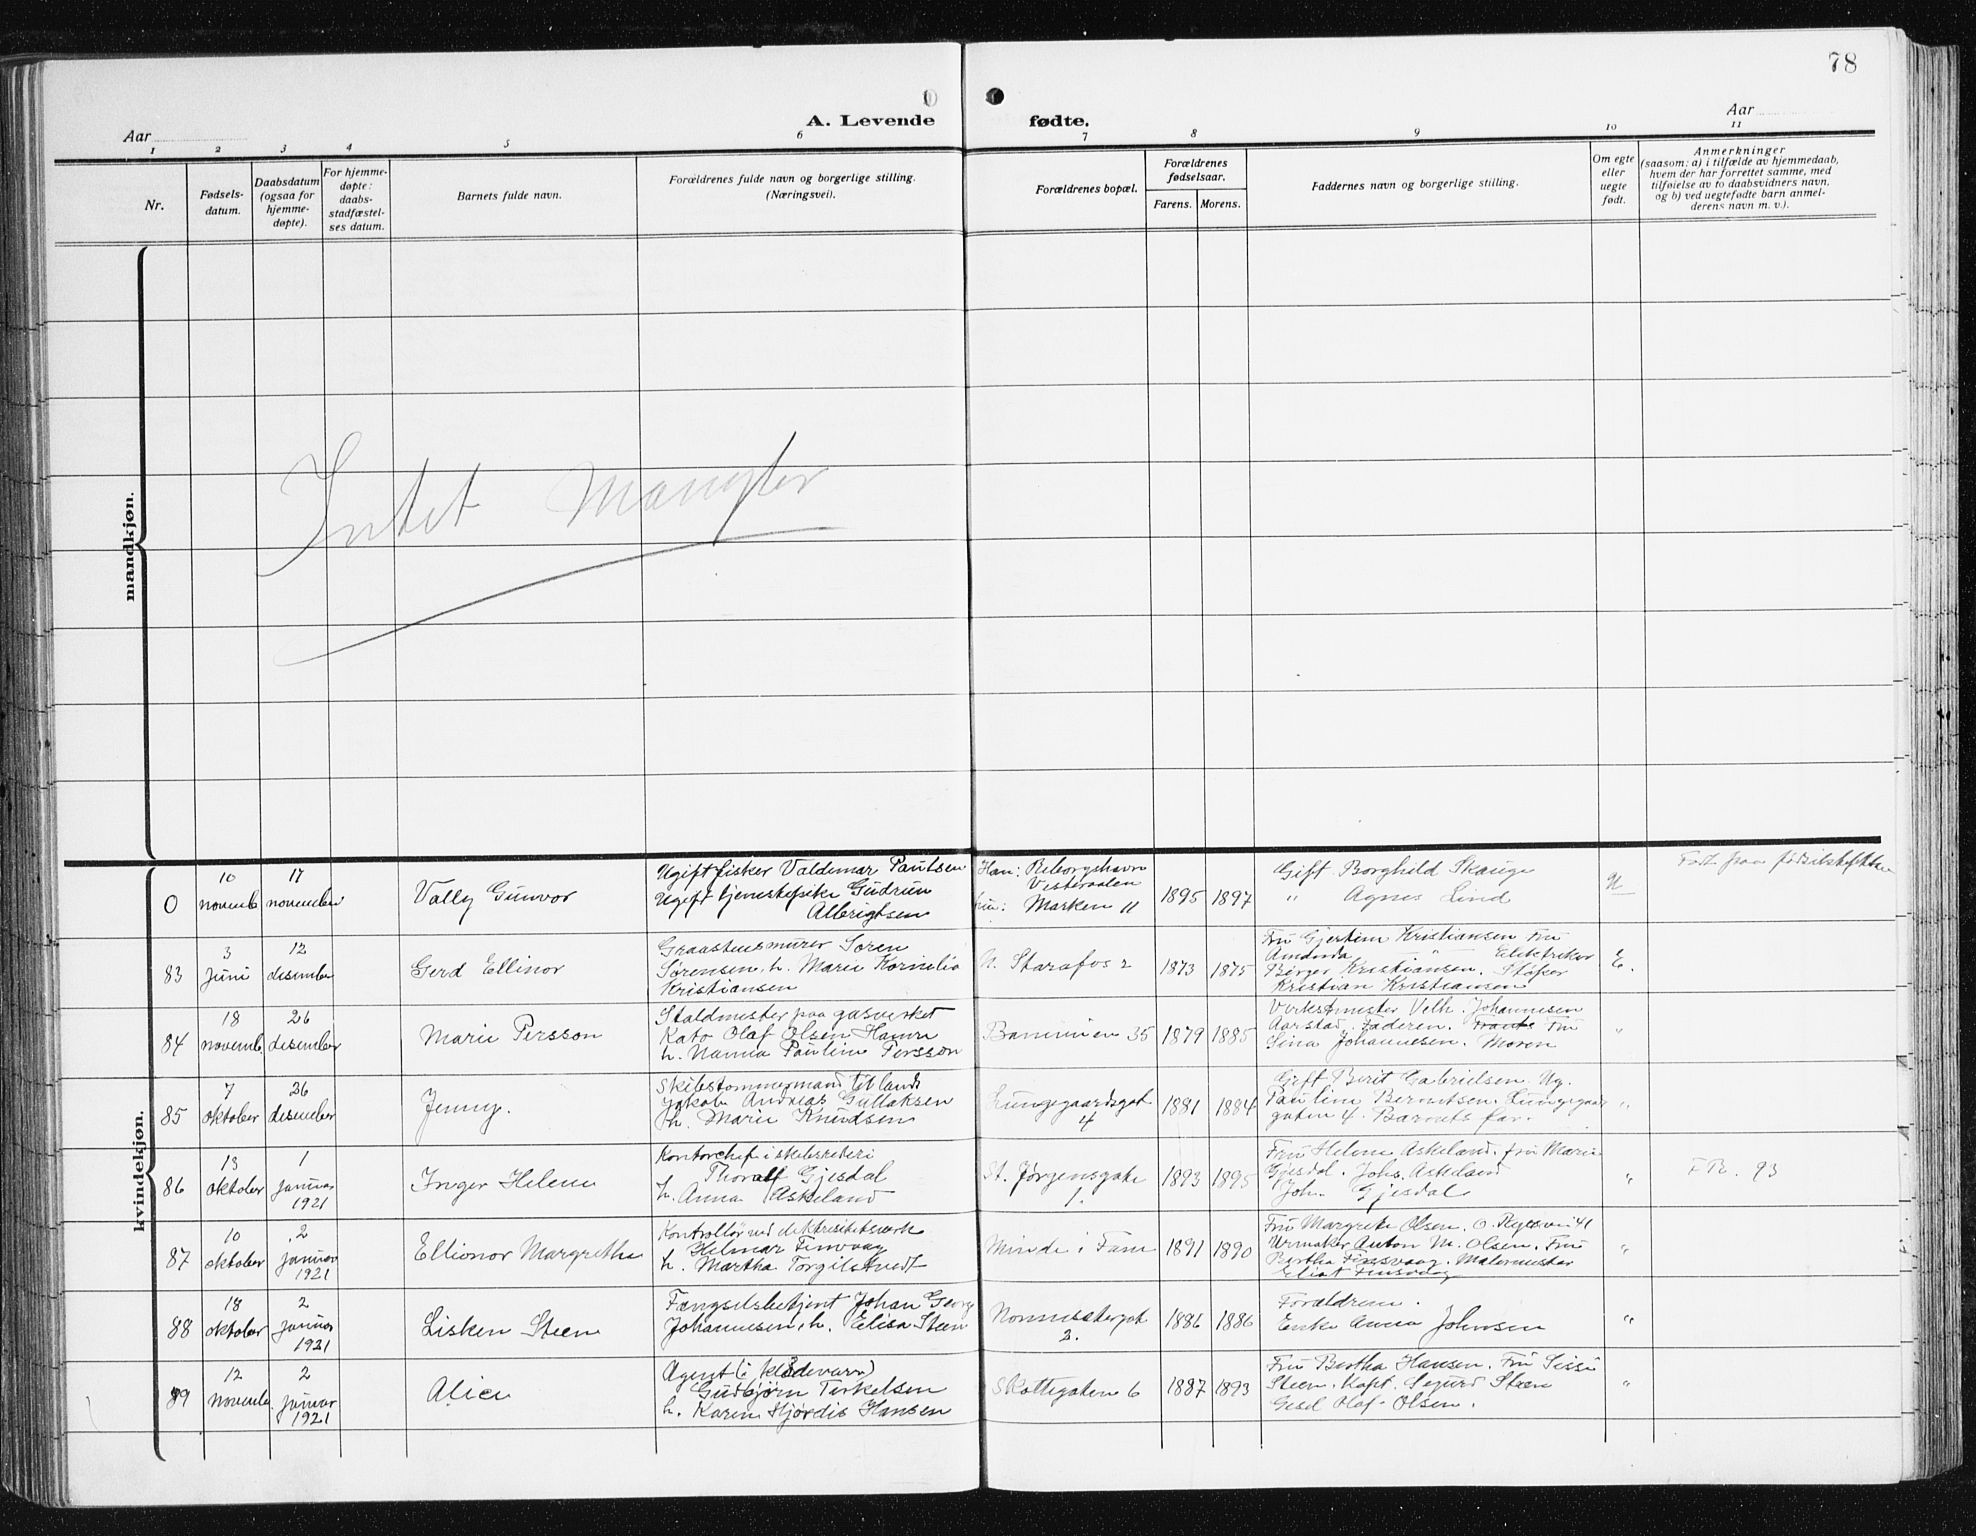 78
Aar
A. Levende
fødte.
Aar
1 2 3 4 5 6 7 8 9 10 11
Nr.
Fødsels-
datum.
Daabsdatum
(ogsaa for
hjemme-
døpte).
For hjemme-
døpte:
daabs-
stadfæstel-
ses datum.
Barnets fulde navn.
Forældrenes fulde navn og borgerlige stilling.
(Næringsvei).
Forældrenes bopæl.
Forældrenes
fødselsaar.
Farens. Morens.
Faddernes navn og borgerlige stilling.
Om egte
eller
uegte
født.
Anmerkninger
(saasom: a) i tilfælde av hjemmedaab,
hvem der har forrettet samme, med
tilføielse av to daabsvidners navn,
og b) ved uegtefødte barn anmel-
derens navn m. v.).
mandkjøn.
Intet Mangler
kvindekjøn.
0
10
novemb
17
november
Vally Gunvor
Ugift fisker Valdemar Paulsen
Ugift tjenestepike Gudrun
Albrigtsen
Han:
Vesteraalen
hun: Marken 11
1895 1897
Gift Borghild Skauge
" Agnes Lind
U
83
3
Juni
12
desember
Gerd Ellinor
Graastensmurer Søren
Sørensen, h. Marie Kornelia
Kristiansen
N. Starefos 2
1873 1875
Fru Gjertine Kristiansen Fru
Amanda " Elektriker
Birger Kristiansen. Støper
Kristian Kristiansen
E.
84
18
novemb.
26
desember
Marie Persson
Staldmester paa gasverket
Kato Olaf Olsen Hamre
h. Nanna Pauline Persson
35
1879 1885
Verksmester Velh. Johannesen
Aarstad. Faderen. Fru
Sina Johannesen. Moren
"
85
7
oktober
26
desember
Jenny.
Skibstømmermand til lands
Jakob Andreas Gullaksen
h. Marie Knudsen
Lungegaardsgat
4
1881 1884
Gift Berit Gabrielsen. Ug.
Pauline Berntsen. Lungegaar
gaten 4. Barnets far.
"
86
13
oktober
1
januar
1921
Inger Helene
Kontorchef i skibsrederi
Thoralf Gjesdal
h. Anna Askeland
St. Jørgensgate
1.
1893 1895
Fru Helene Askeland. fru Marie
Gjesdal. Johs. Askeland
Joh. Gjesdal
"
F.B. 93
87
10
oktober
2
januar
1921
Ellionor Margrethe
Kontrollør ved elektrisitetsverk
Helmar Finsvaag
h. Martha Torgilstvedt
Minde i Fane
1891 1890
Fru Margrete Olsen. 41
Urmaker Anton M. Olsen. Fru
Bertha Finsvaag. Malermester
Eliat Finsvaag
"
88
18
oktober
2
januar
1921
Lisken Steen
Fængselsbetjent Johan Georg
Johannesen, h. Elisa Steen
Nonnestergat
2.
1886 1886
Forældrene.
Enke Anna Johnsen
"
89
12
novemb.
2
januar
1921
Alice
Agent (i klædevarer)
Gudbjørn Terkelsen
h. Karen Hjørdis Hansen
Skottegaten 6
1887 1893
Fru Bertha Hansen. Fru Sissi
Steen. Kapt. Sigurd Steen
Gesel Olaf Olsen.
"